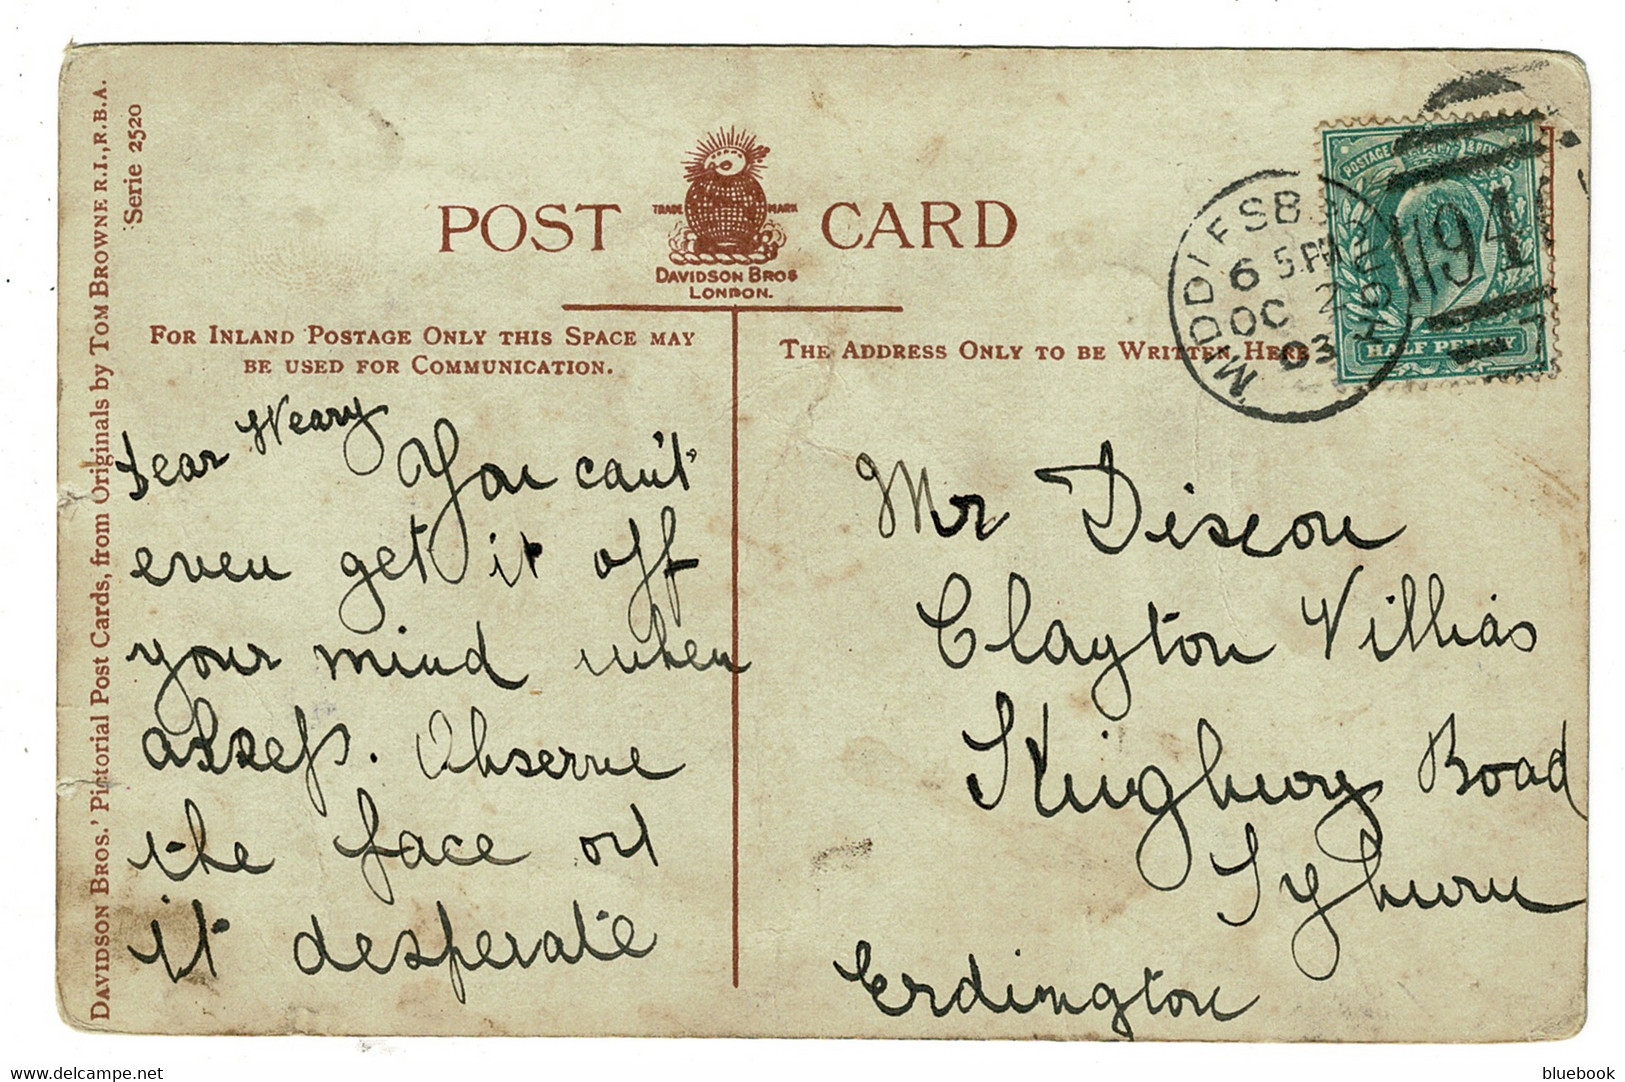 DAVIDSON BROS.' Pictorial Post Cards, from Originals by TOM BROWNE R.I., R.B.A.
Serie 2520
POST CARD
TRADE MARK
DAVIDSON BROS
LONDON.
FOR INLAND POSTAGE ONLY THIS SPACE MAY
BE USED FOR COMMUNICATION.
THE ADDRESS ONLY TO BE WRITTEN HERE
POSTAGE & REVENUE
HALF PENNY
1194
MIDDLESBROUGH
6 5.PM
OC 2
03
Dear Weary
You can't
even get it off
your mind when
assess. Observe
the face on
it desperate
Mr
Clayton Villias
Kingbury Road
Erdington
delcampe.net
bluebook